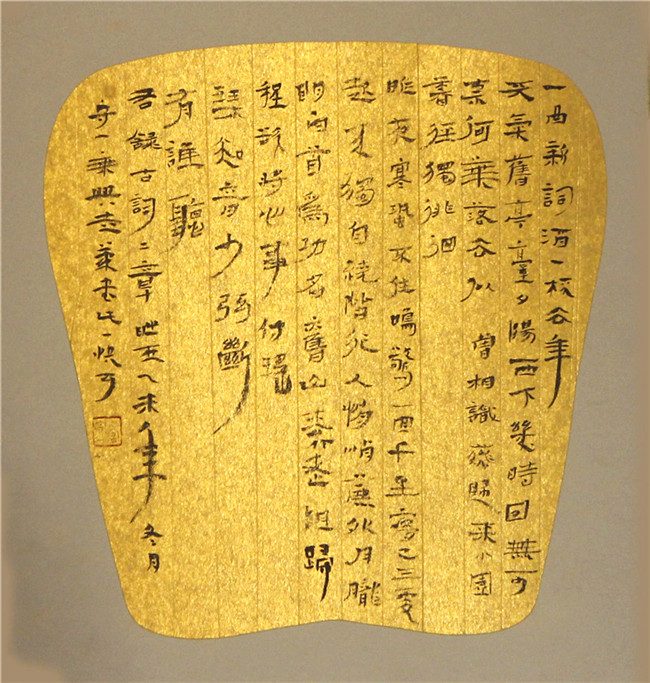 一曲新詞酒一杯去年
天氣舊亭臺夕陽西下幾時回無可
柰何華落去似曾相識燕歸來小園
香徑獨徘徊
昨夜寒蛩不住鳴驚回千里夢已三更
起來獨自繞階行人悄悄簾外月朧
明白首為功名舊山松竹老阻歸
程欲將心事付瑤
琴知音少弦斷
有誰聽
右錄古詞二章時在乙未年冬月
守一乘興走筆書此一快